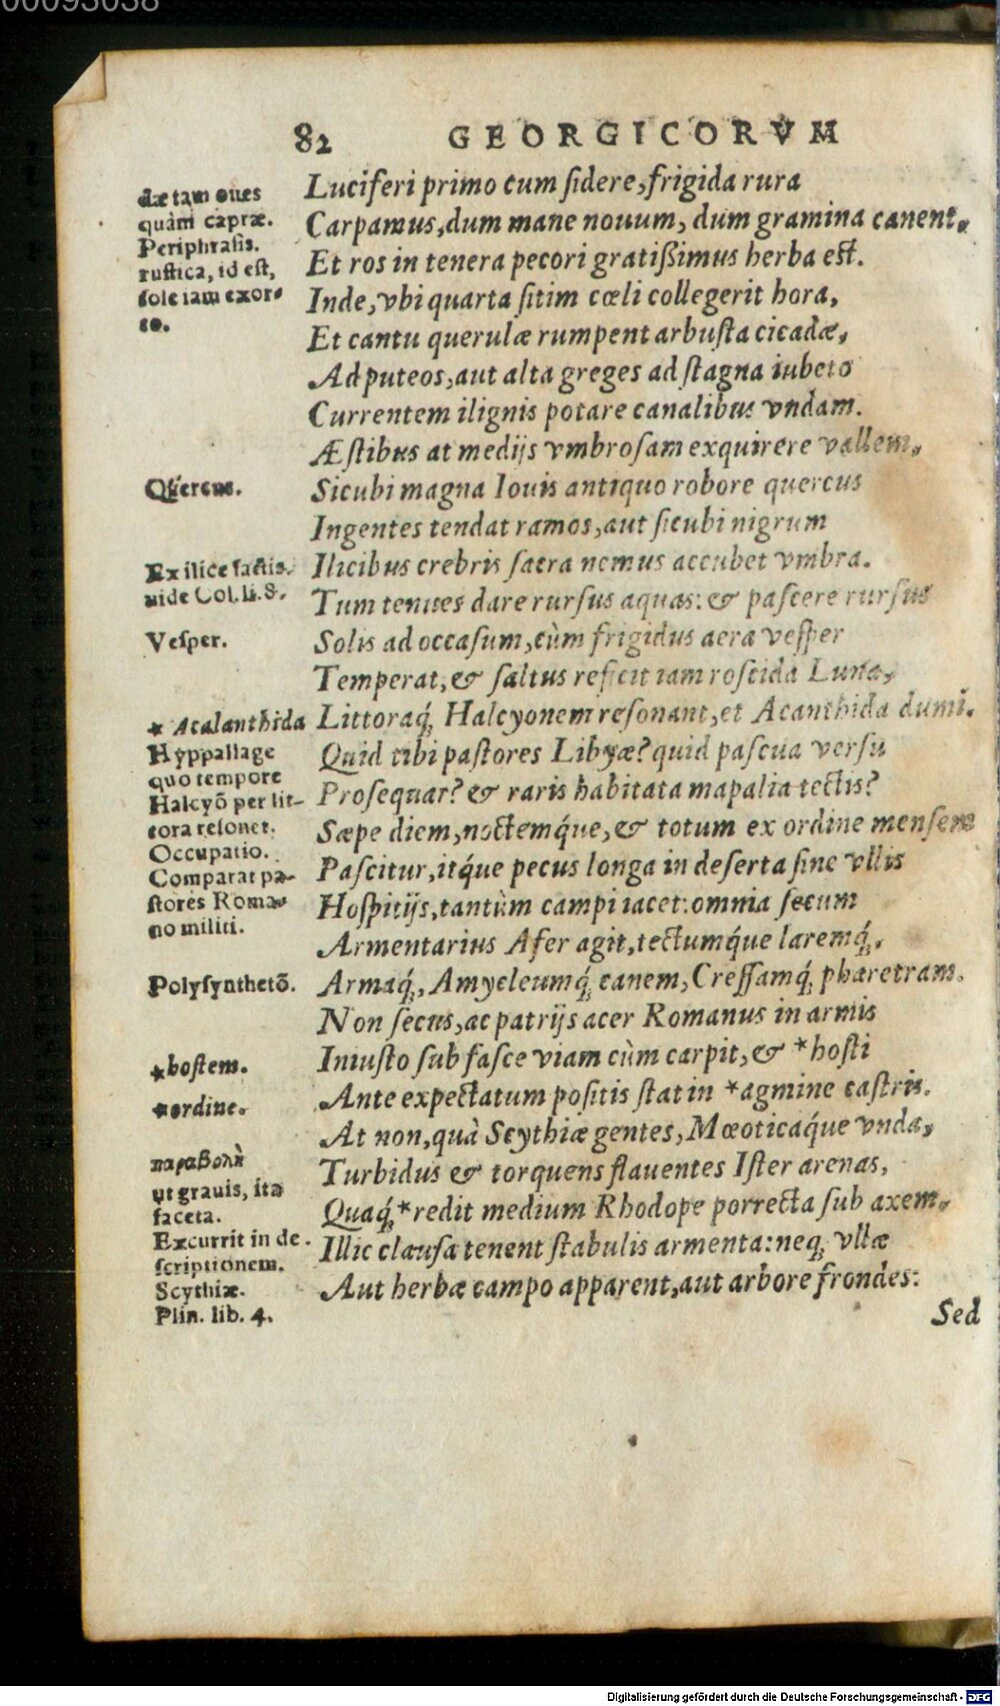 00093038
82 GEORGICORVM
dæ tam oues
quàm capræ.
Periphrasis.
rustica, id est,
sole iam exor-
to.
Quercus.
Ex ilice factis.
uide Col. li. 8.
Vesper.
* Acalanthida
Hyppallage
quo tempore
Halcyõ per lit-
tora resonet.
Occupatio.
Comparat pa-
stores Roma-
no militi.
Polysynthetõ.
*hostem.
*ordine.
παραβολὴ
ut grauis, ita
faceta.
Excurrit in de-
scriptionem.
Scythiæ.
Plin. lib. 4.
Luciferi primo cum sidere, frigida rura
Carpamus, dum mane nouum, dum gramina canent,
Et ros in tenera pecori gratißimus herba est.
Inde, vbi quarta sitim cœli collegerit hora,
Et cantu querulæ rumpent arbusta cicadæ,
Ad puteos, aut alta greges ad stagna iubeto
Currentem ilignis potare canalibus vndam.
Æstibus at medijs vmbrosam exquirere vallem,
Sicubi magna Iouis antiquo robore quercus
Ingentes tendat ramos, aut sicubi nigrum
Ilicibus crebris sacra nemus accubet vmbra.
Tum tenues dare rursus aquas: & pascere rursus
Solis ad occasum, cùm frigidus aera vesper
Temperat, & saltus reficit iam roscida Luna,
Littoraq́; Halcyonem resonant, et Acanthida dumi.
Quid tibi pastores Libyæ? quid pascua versu
Prosequar? & raris habitata mapalia tectis?
Sæpe diem, noctemq́ue, & totum ex ordine mensem
Pascitur, itq́ue pecus longa in deserta sine vllis
Hospitijs, tantùm campi iacet: omnia secum
Armentarius Afer agit, tectumq́ue laremq́;,
Armaq́;, Amycleumq́; canem, Cressamq́; pharetram.
Non secus, ac patrijs acer Romanus in armis
Iniusto sub fasce viam cùm carpit, & *hosti
Ante expectatum positis stat in *agmine castris.
At non, quà Scythiæ gentes, Mœoticaq́ue vnda,
Turbidus & torquens flauentes Ister arenas,
Quaq́; *redit medium Rhodope porrecta sub axem.
Illic clausa tenent stabulis armenta: neq; vllæ
Aut herbæ campo apparent, aut arbore frondes:
Sed
Digitalisierung gefördert durch die Deutsche Forschungsgemeinschaft - DFG